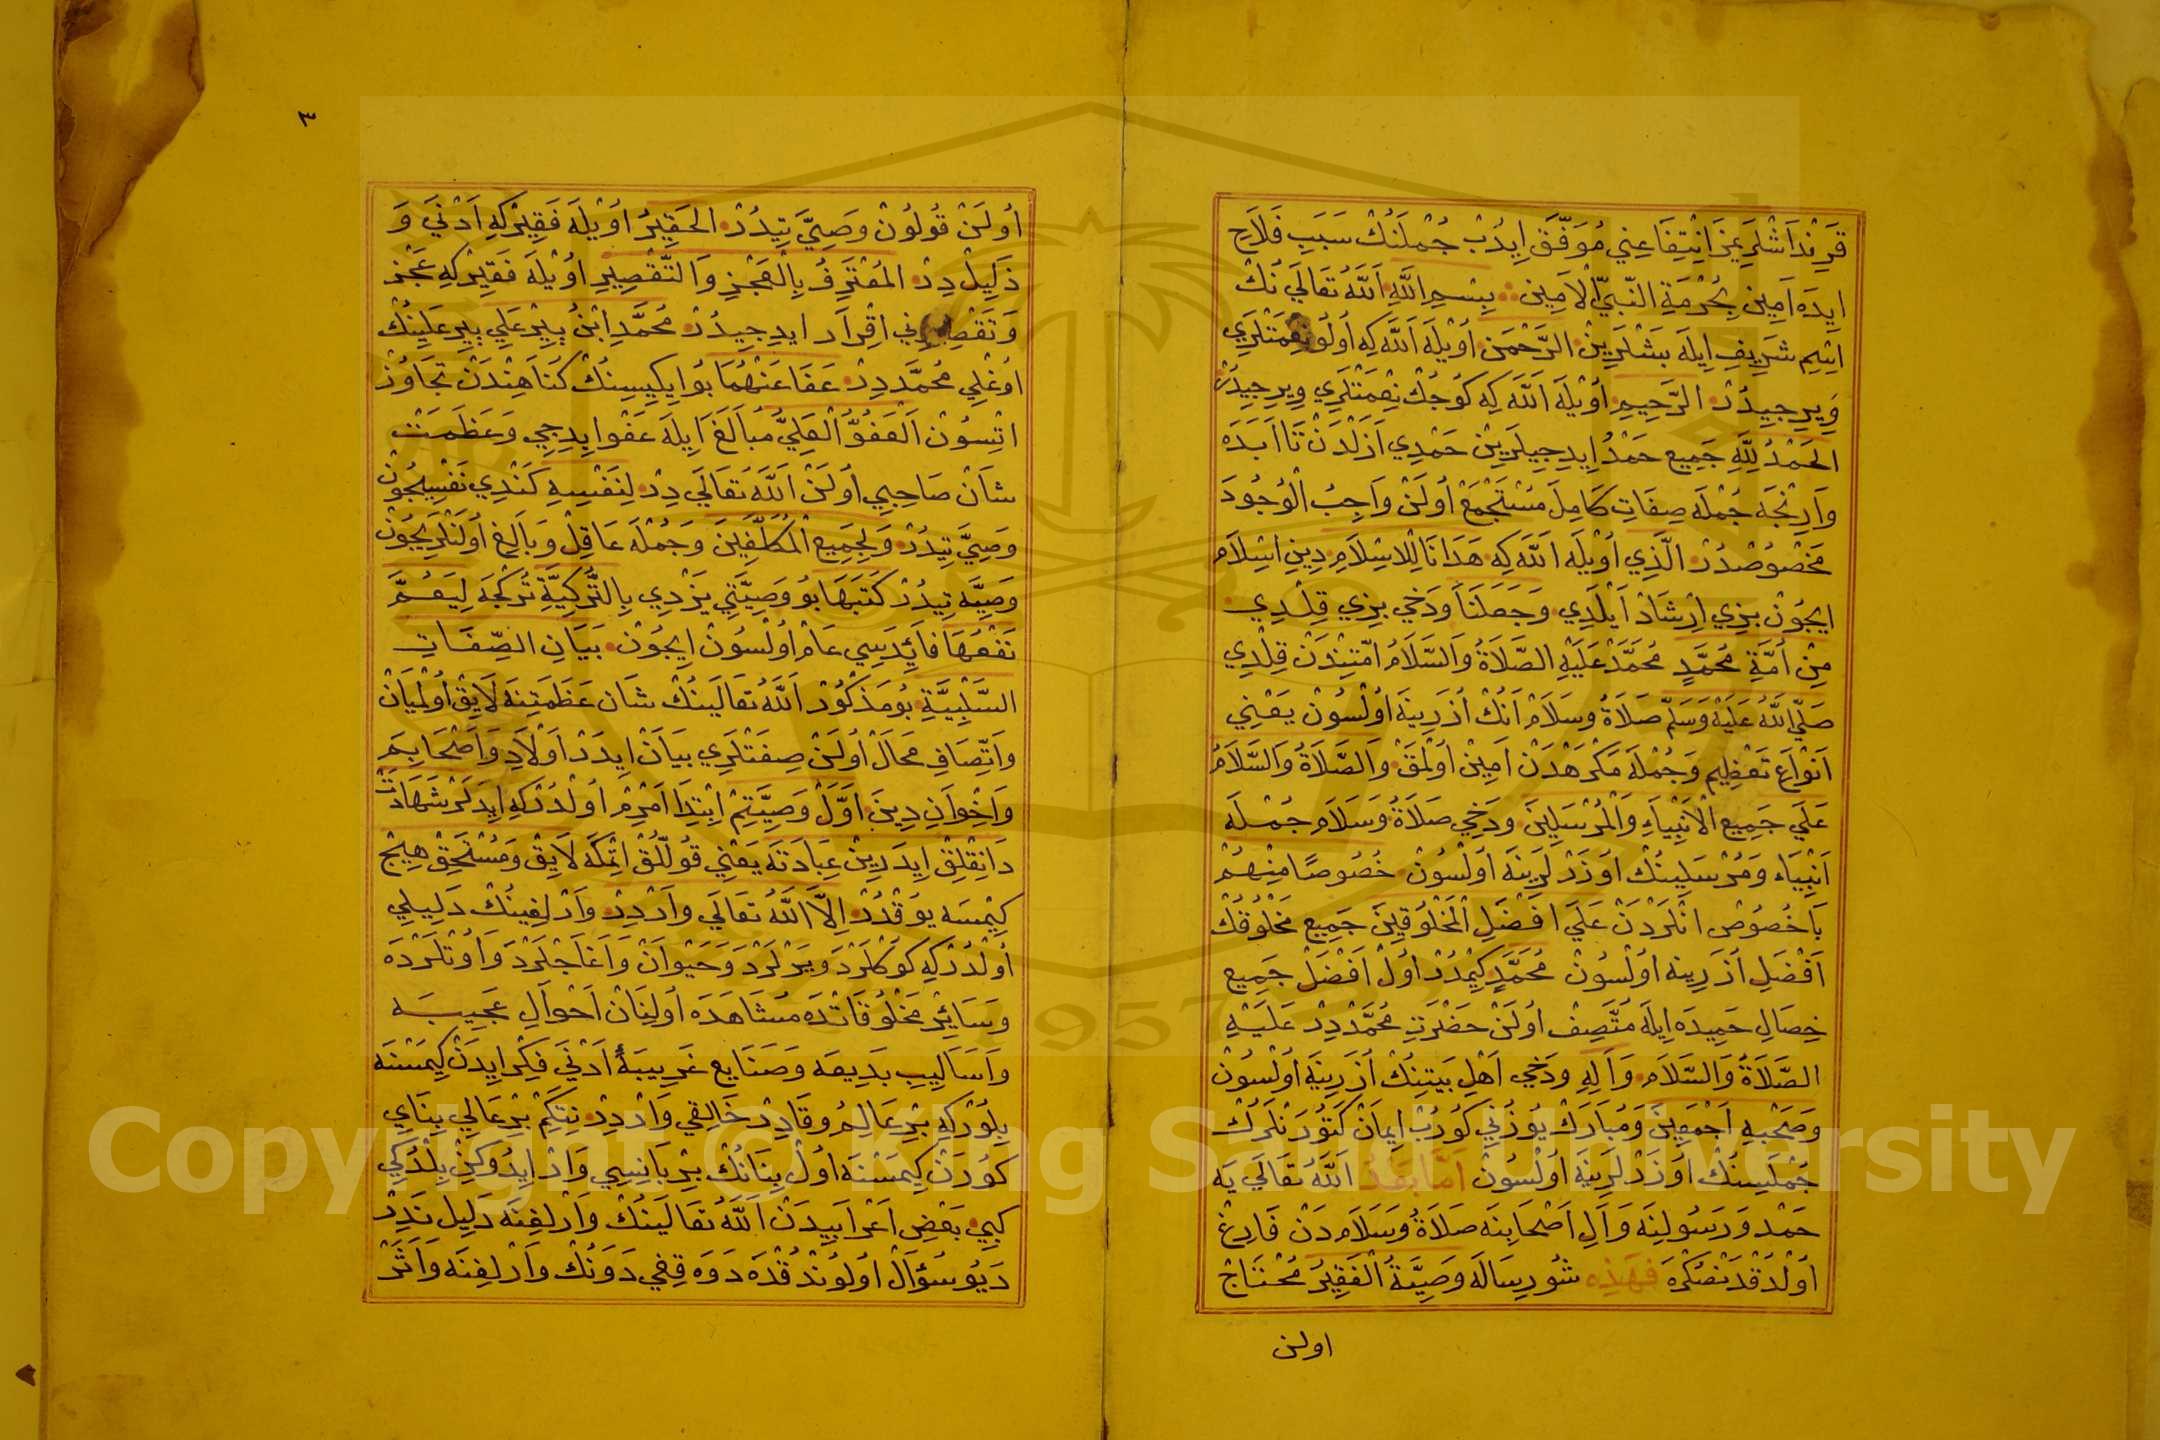 قَرِنْدَاشْلَرِيمِزَ اِنْتِفَاعِنِي مُوَفَّقْ اِيدُبْ جُمْلَنُكْ سَبَبِ فَلَاحِ
ايده اَمِين بِحُرْمَةِ النَّبِيِّ الْاَمِينِ بِسْمِ اللّٰهِ اَللّٰهُ تَعَالَي نُكْ
اِسْمِ شَرِيفِ اِيلَه بَشْلَرِينْ الرَّحْمَنِ اُويْلَه اَللّٰه كِه اُولُو نِعْمَتْلَرِي
وِيرِجِيدُرْ الرَّحِيمِ اُويْلَه اَللّٰه كِه كُوجُكْ نِعْمَتْلَرِي وِيرِجِيدُرْ
الْحَمْدُ لِلّٰهِ جَمِيعِ حَمْدْ اِيدِجِيلَرِينْ حَمْدِي اَزَلْدَنْ تَا اَبَدَه
وَارِنْجَه جُمْلَه صِفَاتِ كَامِلَه مُسْتَجْمِعْ اُولَنْ وَاجِبُ الْوُجُودَ
مَخْصُوصْدُرْ الَّذِي اُويْلَه اَللّٰه كِه هَدَانَا لِلْاِسْلَامِ دِينِ اِسْلَام
ايچُونْ بِزِي اِرْشَادْ اَيْلَدِي وَجَعَلَنَا وَدَخِي بِزِي قِلْدِي
مِنْ اُمَّةِ مُحَمَّدٍ مُحَمَّدْ عَلَيْهِ الصَّلَاةُ وَالسَّلَامُ اُمَّتِنْدَنْ قِلْدِي
صَلَّي اللّٰهُ عَلَيْهِ وَسَلَّمَ صَلَاةُ وسَلَامْ اَنُكْ اُزَرِينَه اُولْسُونْ يَعْنِي
اَنْوَاعِ تَعْظِيم وَجُمْلَه مَكْرَهْدَنْ اَمِينْ اُولْمَقْ وَالصَّلَاةُ وَالسَّلَامُ
عَلَي جَمِيعِ الْاَنْبِيَاءِ وَالْمُرْسَلِينَ وَدَخِي صَلَاةُ وَسَلَام جُمْلَه
اَنْبِيَاء وَمُرْسَلِينُكْ اُوزَرْلَرِينَه اُولْسُونْ خُصُوصًا مِنْهُمْ
بَاخُصُوصْ اَنْلَرْدَنْ عَلَي اَفْضَلِ الْمَخْلُوقِينَ جَمِيعِ مَخْلُوقُكْ
اَفْضَلِ اُزَرِينه اُولْسُونْ مُحَمَّدٍ كِيمْدُرْ اُولْ اَفْضَلْ جَمِيعِ
خِصَالِ حَمِيدَه اِيلَه مُتَّصِفْ اُولَنْ حَضْرَتِ مُحَمَّدْدِرْ عَلَيْهِ
الصَّلَاةُ وَالسَّلَام وَاٰلِهِ وَدَخِي اَهْلِ بَيْتِنُكْ اُزَرِينَه اُولْسُونْ
وَصَحْبِهِ اَجْمَعِينَ وَمُبَارَكْ يُوزُنِي كُورُبْ اِيمَانْ كَتُورَنْلَرُكْ
جُمْلَسِنُكْ اُوزَرْلَرِينَه اُولْسُونْ اَمَّا بَعْدُ اَللّٰهُ تَعَالَي يَه
حَمْد وَرَسُولِنَه وَاٰلِ اَصْحَابِنَه صَلَاةُ وَسَلَام دَنْ فَارِغْ
اُولْدُقْدَنْصُكْرَه فهَذِه شُو رِسَالَه وَصِيَّةُ الْفَقِيرُ مُحْتَاجْ
اولن
٣
اُولَنْ قُولُونْ وَصِيَّتِيدُرْ الْحَقِيرُ اُويْلَه فَقِيرْكِه اَدْنَي وَ
ذَلِيلْ دِرْ الْمُعْتَرِفُ بِالْعَجْزِ وَالتَّقْصِيرِ اُويْلَه فَقِيرْكِه عَجْز
وَتَقْصِيرِني اِقْرَار ايدِجِيدُرْ مُحَمَّدِ ابْنُ بِيرْ عَلِي بِير عَلِينُكْ
اوُغْلِي مُحَمَّددِرْ عَفَا عَنْهُمَا بُو ايكِيسِنُكْ كُنَاهِنْدَنْ تَجَاوُزْ
اتْسُون الْعَفُوُّ الْعَلِيُّ مُبَالَغَ اِيلَه عَفْو ايدِجِي وَعَظَمَتْ
شَانْ صَاحِبِي اُولَنْ اَللّٰه تَعَالَي دِرْ لِنَفْسِهِ كَنْدِي نَفْسِيچُونْ
وَصِيَّتِيدُرْ وَلِجَمِيعِ الْمُكَلَّفِينَ وَجُمْلَه عَاقِلْ وَبَالِغِ اُولَنْلَرِيچُونْ
وَصِيَّه تِيدُرْ كَتَبَهَا بُو وَصِيَّتِي يَزْدِي بِالتُّرْكِيَّةِ تُرْكْجَه لِيَعُمَّ
نَفْعُهَا فَائِدَسِي عَامْ اُولْسُونْ اِيچُونْ بَيَانِ الصِّفَاتِ
السَّلْبِيَّةِ بُو مَذْكُورْ اَللّٰهُ تَعَالَينُكْ شَان عَظَمَتِنَه لَايِقْ اُولْمَيَانْ
وَاتِّصَافِ مَحَالْ اُولَنْ صِفَتْلَرِي بَيَانْ اِيدَرْ اَوْلَادِ وَاَصْحَابِمَ
وَاِخْوَانِ دِينَ اَوَّلْ وَصِيَّتِمْ اِبْتِدَا اَمْرِمْ اُولْدُرْكِه اِيدَلَرْ شَهَادَتْ
دَانِقْلِقْ اِيدَرِينْ عِبَادَتَه يَعْنِي قُولّلُقْ اِتْمَكَه لَايِقْ وَمُسْتَحِقْ هِيچْ
كِيمْسَه يوُقْدُرْ اِلَّا اللّٰهُ تَعَالَي وَارْدِرْ وَارْلِغِينُكْ دَلِيلِي
اُولْدُرْكِه كُوكْلَرْدَ ويَرْلَرْدَ وَحَيْوَانْ وَاَغَاجْلَرْدَ وَاُوتْلَرْدَه
وَسَايِرْ مَخْلُوقَاتْدَه مُشَاهَدَه اُولِنَانْ اَحْوَالِ عَجِيبَه
وَاَسَالِيبِ بَدِيعَه وَصَنَايِعِ غَرِيبَهُ اَدْنَي فِكْر اِيدَنْ كِيمَسْنَه
بِلُورْكِه بِرْ عَالِمُ وقَادِرْ خَالِقِي وَارْدِرْ نِتَكِمْ بِرْ عَالِي بِنَايِ
كُورَنْ كِيمَسْنَه اُولْ بِنَانُكْ بِرْ بَانِيسِي وَارْ اِيدُوكِنْ بِلْدُكِي
كِبِي بَعْضِ اَعْرَابِيدَنْ اَللّٰهُ تعَالَينُكْ وَارْلِغِنَه دَلِيل نَدِرْ
دَيُو سُؤَالْ اُولُونْدُقْدَه دَوَه قِغِي دَوَنُكْ وَارْلِغِنَه وَاَثَرْ
Copyright © King Saud University
1957